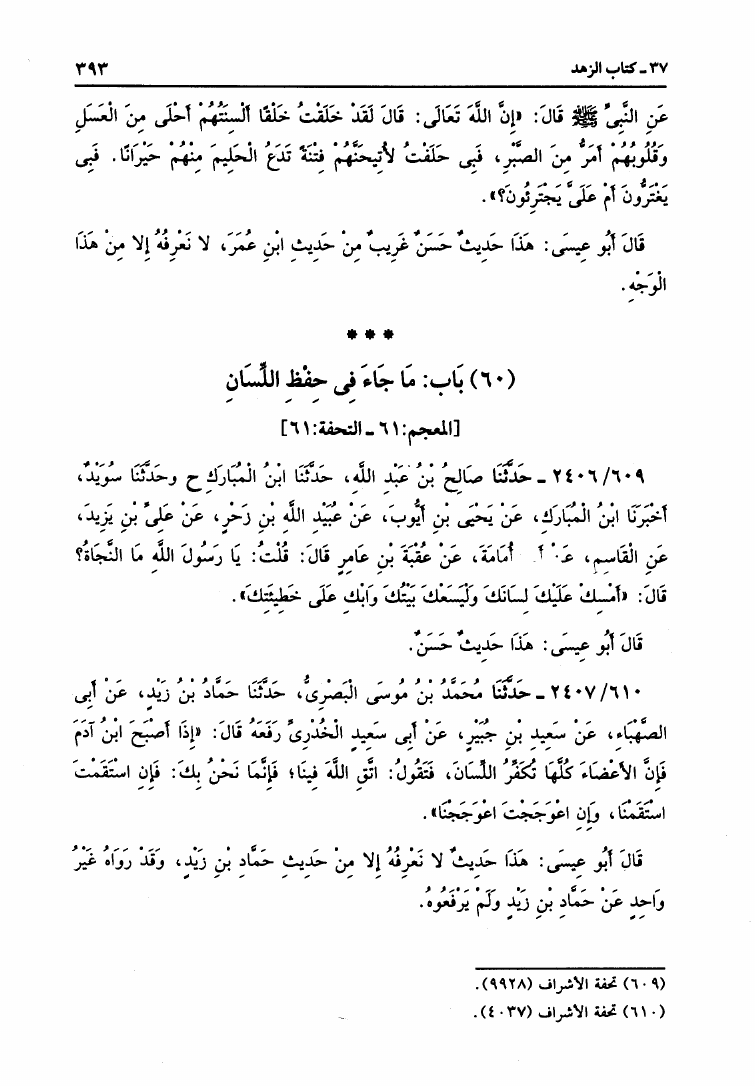 ٣٧ ـ كتاب الزهد ٣٩٣
عَنِ النَّبِيِّ ﷺ قَالَ: «إِنَّ اللَّهَ تَعَالَى: قَالَ لَقَدْ خَلَقْتُ خَلْقًا أَلْسِنَتُهُمْ أَحْلَى مِنَ الْعَسَلِ
وَقُلُوبُهُمْ أَمَرُّ مِنَ الصَّبْرِ، فَبِى حَلَفْتُ لأُتِيحَنَّهُمْ فِتْنَةً تَدَعُ الْحَلِيمَ مِنْهُمْ حَيْرَانًا. فَبِى
يَغْتَرُّونَ أَمْ عَلَىَّ يَجْتَرِئُونَ؟».
قَالَ أَبُو عِيسَى: هَذَا حَدِيثٌ حَسَنٌ غَرِيبٌ مِنْ حَدِيثِ ابْنِ عُمَرَ، لا نَعْرِفُهُ إِلا مِنْ هَذَا
الْوَجْهِ.
* * *
(٦٠) بَاب: مَا جَاءَ فِى حِفْظِ اللِّسَانِ
[المعجم:٦١ ـ التحفة:٦١]
٢٤٠٦/٦٠٩ ـ حَدَّثَنَا صَالِحُ بْنُ عَبْدِ اللَّهِ، حَدَّثَنَا ابْنُ الْمُبَارَكِ ح وحَدَّثَنَا سُوَيْدٌ،
أَخْبَرَنَا ابْنُ الْمُبَارَكِ، عَنْ يَحْيَى بْنِ أَيُّوبَ، عَنْ عُبَيْدِ اللَّهِ بْنِ زَحْرٍ، عَنْ عَلِىِّ بْنِ يَزِيدَ،
عَنِ الْقَاسِمِ، أُمَامَةَ، عَنْ عُقْبَةَ بْنِ عَامِرٍ قَالَ: قُلْتُ: يَا رَسُولَ اللَّهِ مَا النَّجَاةُ؟
قَالَ: «أَمْسِكْ عَلَيْكَ لِسَانَكَ وَلْيَسَعْكَ بَيْتُكَ وَابْكِ عَلَى خَطِيئَتِكَ».
قَالَ أَبُو عِيسَى: هَذَا حَدِيثٌ حَسَنٌ.
٢٤٠٧/٦١٠ ـ حَدَّثَنَا مُحَمَّدُ بْنُ مُوسَى الْبَصْرِىُّ، حَدَّثَنَا حَمَّادُ بْنُ زَيْدٍ، عَنْ أَبِى
الصَّهْبَاءِ، عَنْ سَعِيدِ بْنِ جُبَيْرٍ، عَنْ أَبِى سَعِيدٍ الْخُدْرِىِّ رَفَعَهُ قَالَ: «إِذَا أَصْبَحَ ابْنُ آدَمَ
فَإِنَّ الأَعْضَاءَ كُلَّهَا تُكَفِّرُ اللِّسَانَ، فَتَقُولُ: اتَّقِ اللَّهَ فِينَا؛ فَإِنَّمَا نَحْنُ بِكَ: فَإِنِ اسْتَقَمْتَ
اسْتَقَمْنَا، وَإِنِ اعْوَجَجْتَ اعْوَجَجْنَا».
قَالَ أَبُو عِيسَى: هَذَا حَدِيثٌ لا نَعْرِفُهُ إِلا مِنْ حَدِيثِ حَمَّادِ بْنِ زَيْدٍ، وَقَدْ رَوَاهُ غَيْرُ
وَاحِدٍ عَنْ حَمَّادِ بْنِ زَيْدٍ وَلَمْ يَرْفَعُوهُ.
(٦٠٩) تحفة الأشراف (٩٩٢٨).
(٦١٠) تحفة الأشراف (٤٠٣٧).